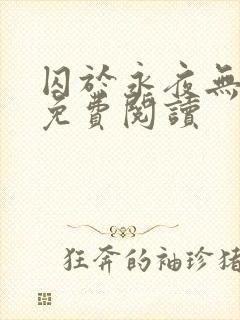 囚於永夜無
免費閱讀
狂奔的袖珍猪